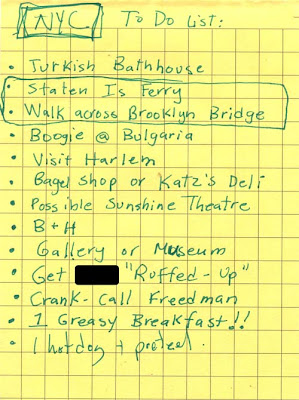 NYC To Do List:
• Turkish Bathhouse
• Staten Is Ferry
• Walk across Brooklyn Bridge
• Boogie @ Bulgaria
• Visit Harlem
• Bagel Shop or Katz's Deli
• Possible Sunshine Theatre
• B + H
• Gallery or Museum
• Get "Ruffed-Up"
• Crank-Call Freedman
• 1 Greasy Breakfast!!
• 1 hotdog +